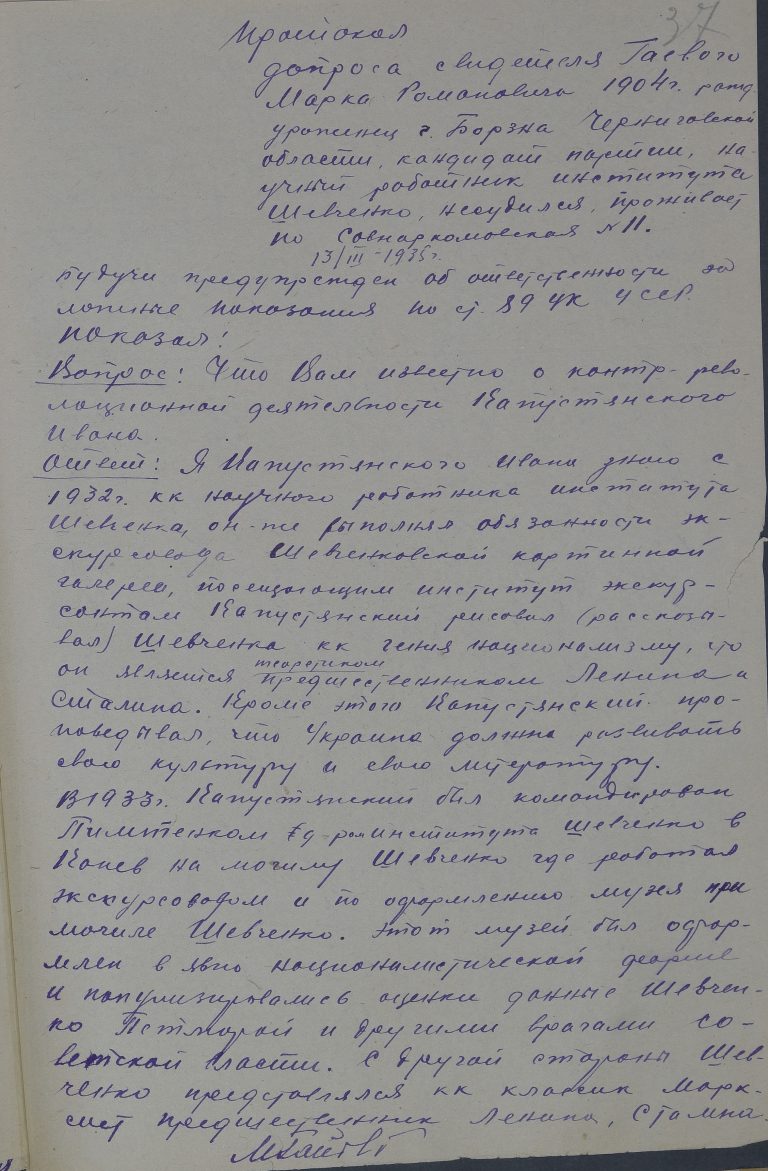 37
Протокол
допроса свидетеля Гаевого
Марка Романовича 1904г. рожд
уроженец г. Борзна Черниговской
области, кандидат партии, на-
учный работник института
Шевченко, несудился, проживает
по Совнаркомовская №11.
13/III-1935г.
Будучи предупрежден об ответственности за
ложные показания по ст. 89 УК УССР.
показал:
Вопрос: Что Вам известно о контр-рево-
люционной деятельности Капустянского
Ивана.
Ответ: Я Капустянского Ивана знаю с
1932г. кк научного работника института
Шевченка, он-же выполнял обязанности эк-
скурсовода Шевченковской картинной
галереи, посещающим институт экскур-
сантам Капустянский рисовал (рассказы-
вал) Шевченка кк гения национализму, что
он является теоретиком предшественником Ленина и
Сталина. Кроме этого Капустянский про-
поведывал, что Украина должна развивать
свою культуру и свою литературу.
В 1933г. Капустянский был командирован
института Шевченко в
Канев на могилу Шевченко где работал
экскурсоводом и по оформлению музея при
могиле Шевченко. Этот музей был офор-
млен в явно националистической форме
и популизировались оценки данные Шевчен-
ко Петлюрой и другими врагами со-
ветской власти. С другой стороны Шев-
ченко представлялся кк классик Марк-
сист предшественник Ленина, Сталина.